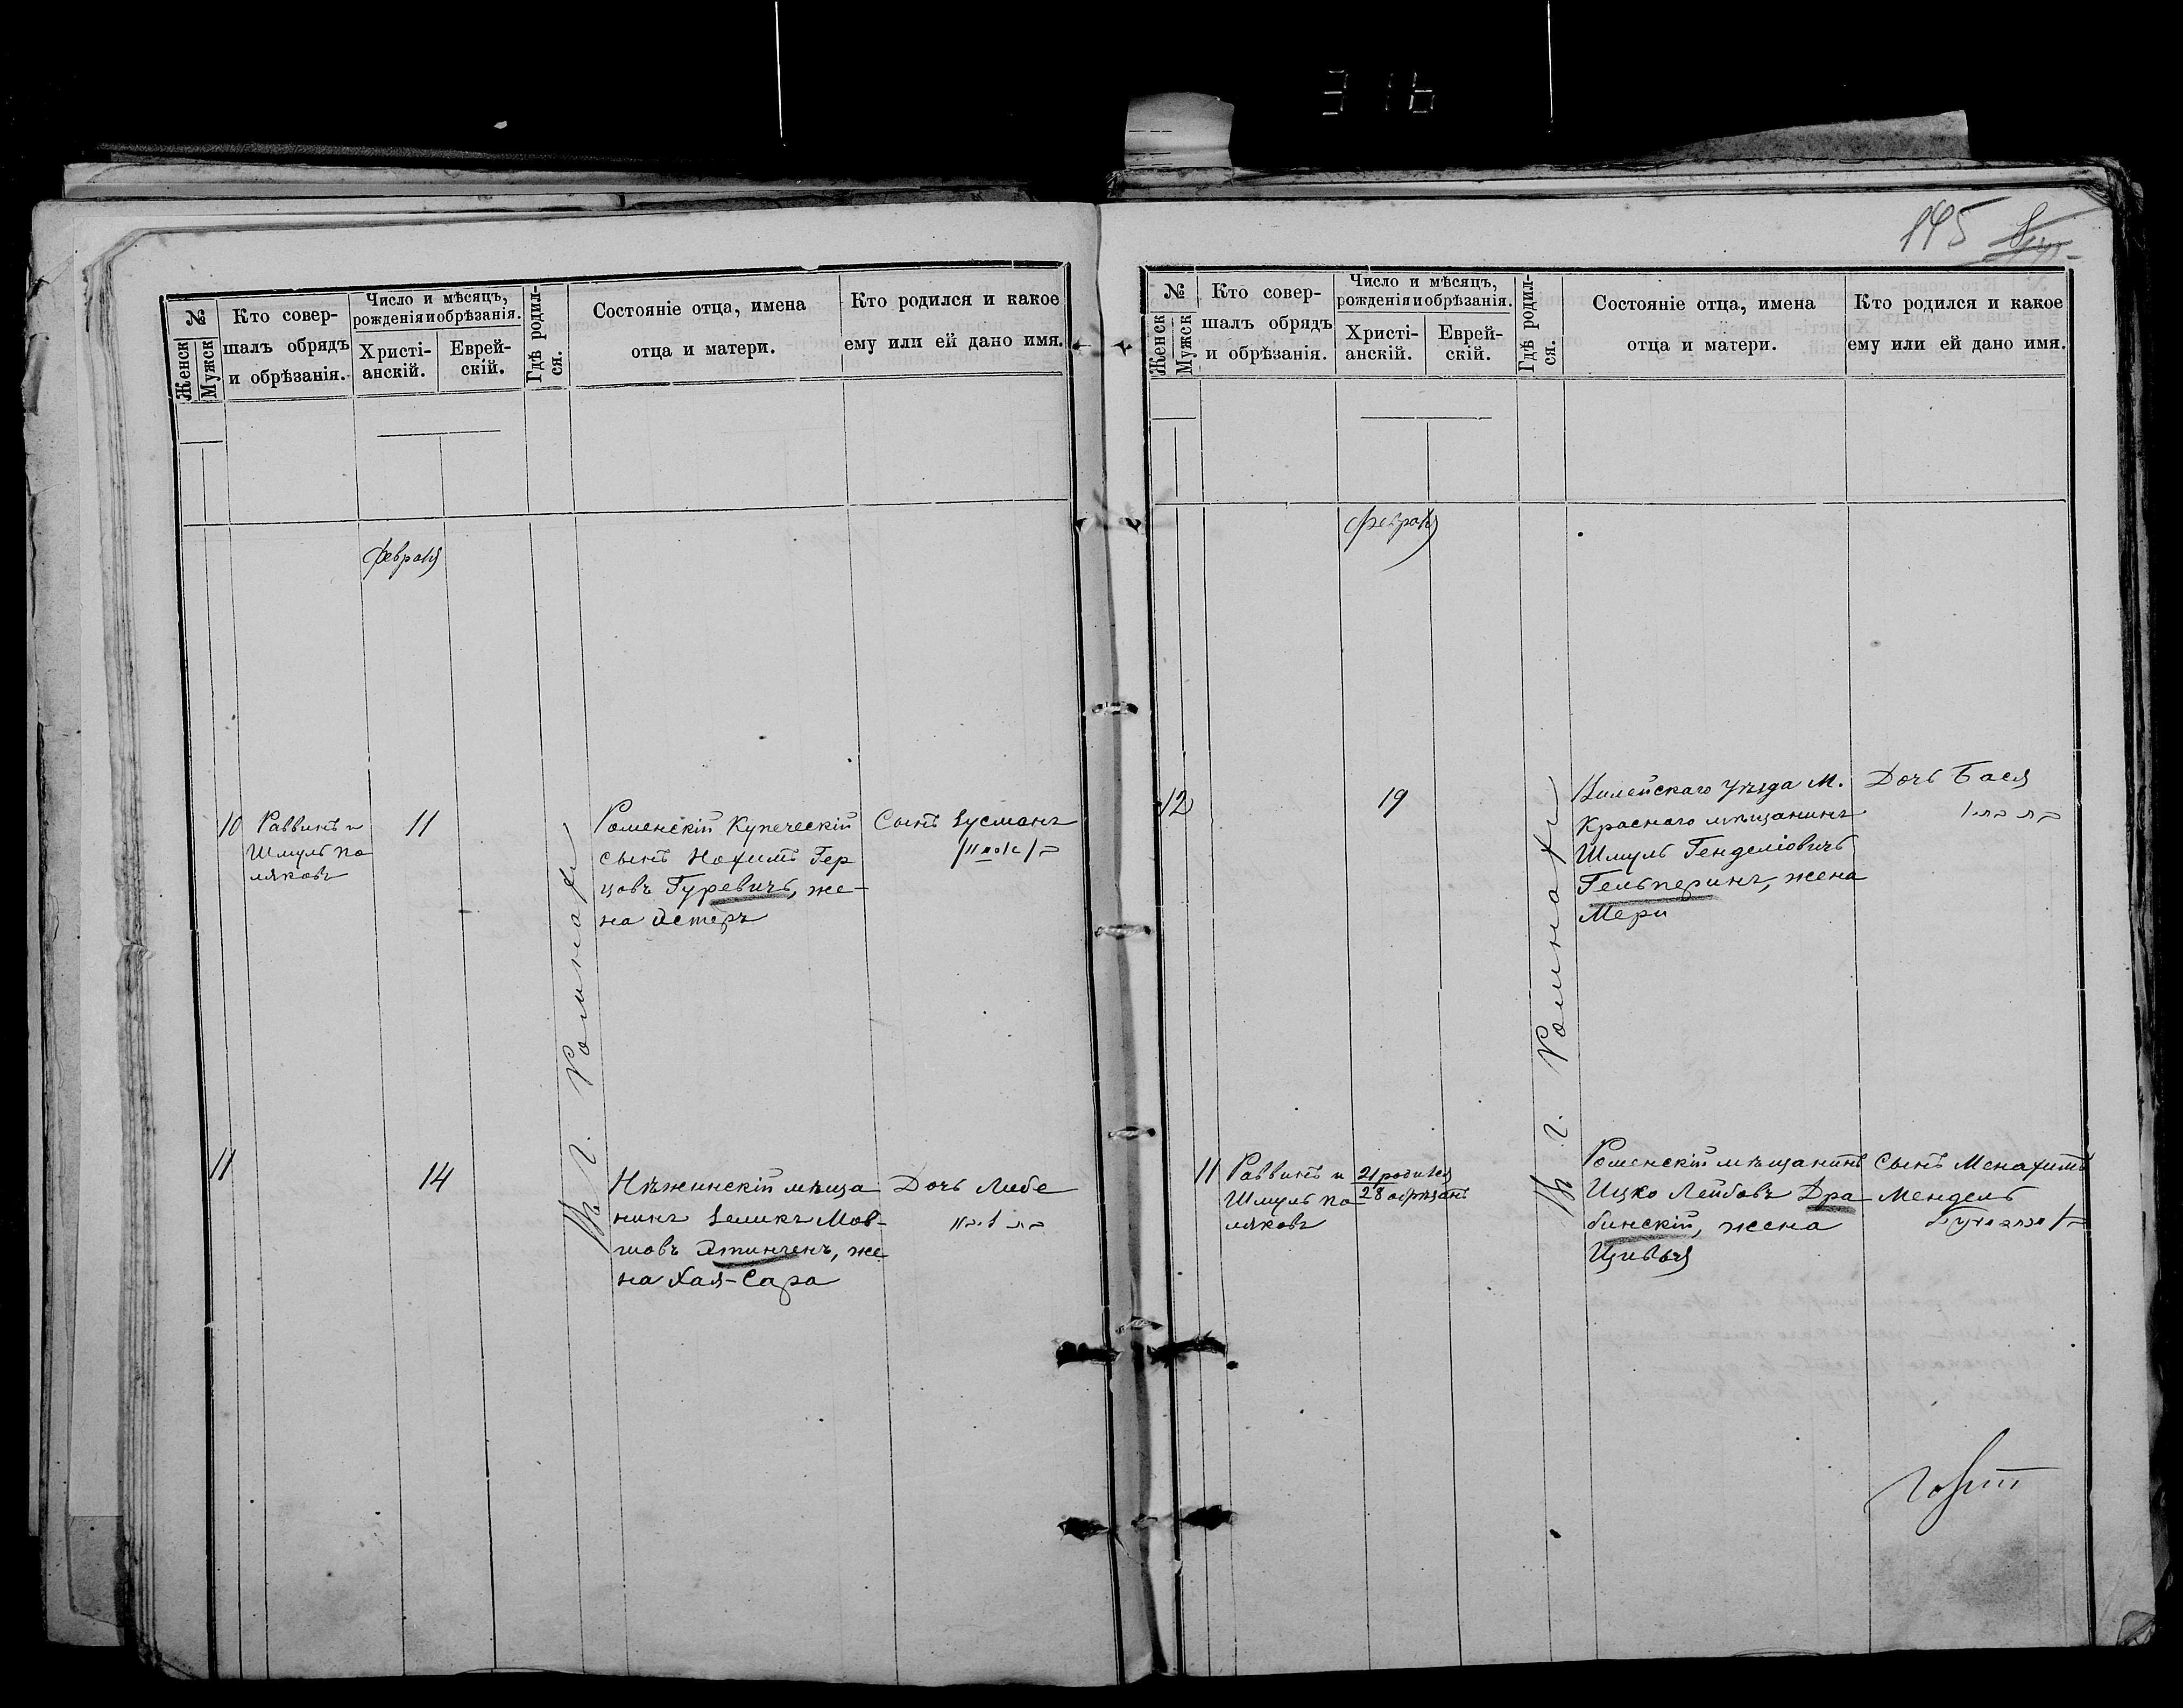 316
145
№
Женск
Мужск
Кто совер-
шалъ обрядъ
и обрѣзанія.
Число и мѣсяцъ,
рожденія и обрѣзанія.
Христі-
анскій.
Еврей-
скій.
Гдѣ родил-
ся.
Состояніе отца, имена
отца и матери.
Кто родился и какое
ему или ей дано имя.
Февраля
10
Раввинъ и
Шмуль По
ляковъ
11
Въ г. Ромнахъ
Роменскій Купеческій
сынъ Нохимъ Гер
цовъ Гуревичъ, же-
на Эстеръ
Сынъ Зусманъ
11
14
Нѣжинскій мѣща
нинъ Зеликъ Мов-
шовъ Этингенъ, же
на Хая-Сара
Дочь Либе
№
Женск
Мужск
Кто совер-
шалъ обрядъ
и обрѣзанія.
Число и мѣсяцъ,
рожденія и обрѣзанія.
Христі-
анскій.
Еврей-
скій.
Гдѣ родил-
ся.
Состояніе отца, имена
отца и матери.
Кто родился и какое
ему или ей дано имя.
Февраля
12
19
Въ г. Ромнахъ
Вилейскаго Уѣзда М.
Краснаго мѣщанинъ
Шмуль Генделіовичъ
Гельперинъ, жена
Мери
Дочь Бася
11
Раввинъ и
Шмуль По
ляковъ
21 родился
28 обрѣзанъ
Роменскій мѣщанинъ
Ицко Лейбовъ Дра
бинскій, жена
Цивья
Сынъ Менахимъ
Мендель